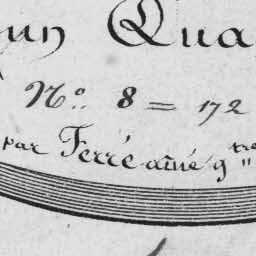 un Qua
N.o 8 = 172
par Ferré aîné g tre "